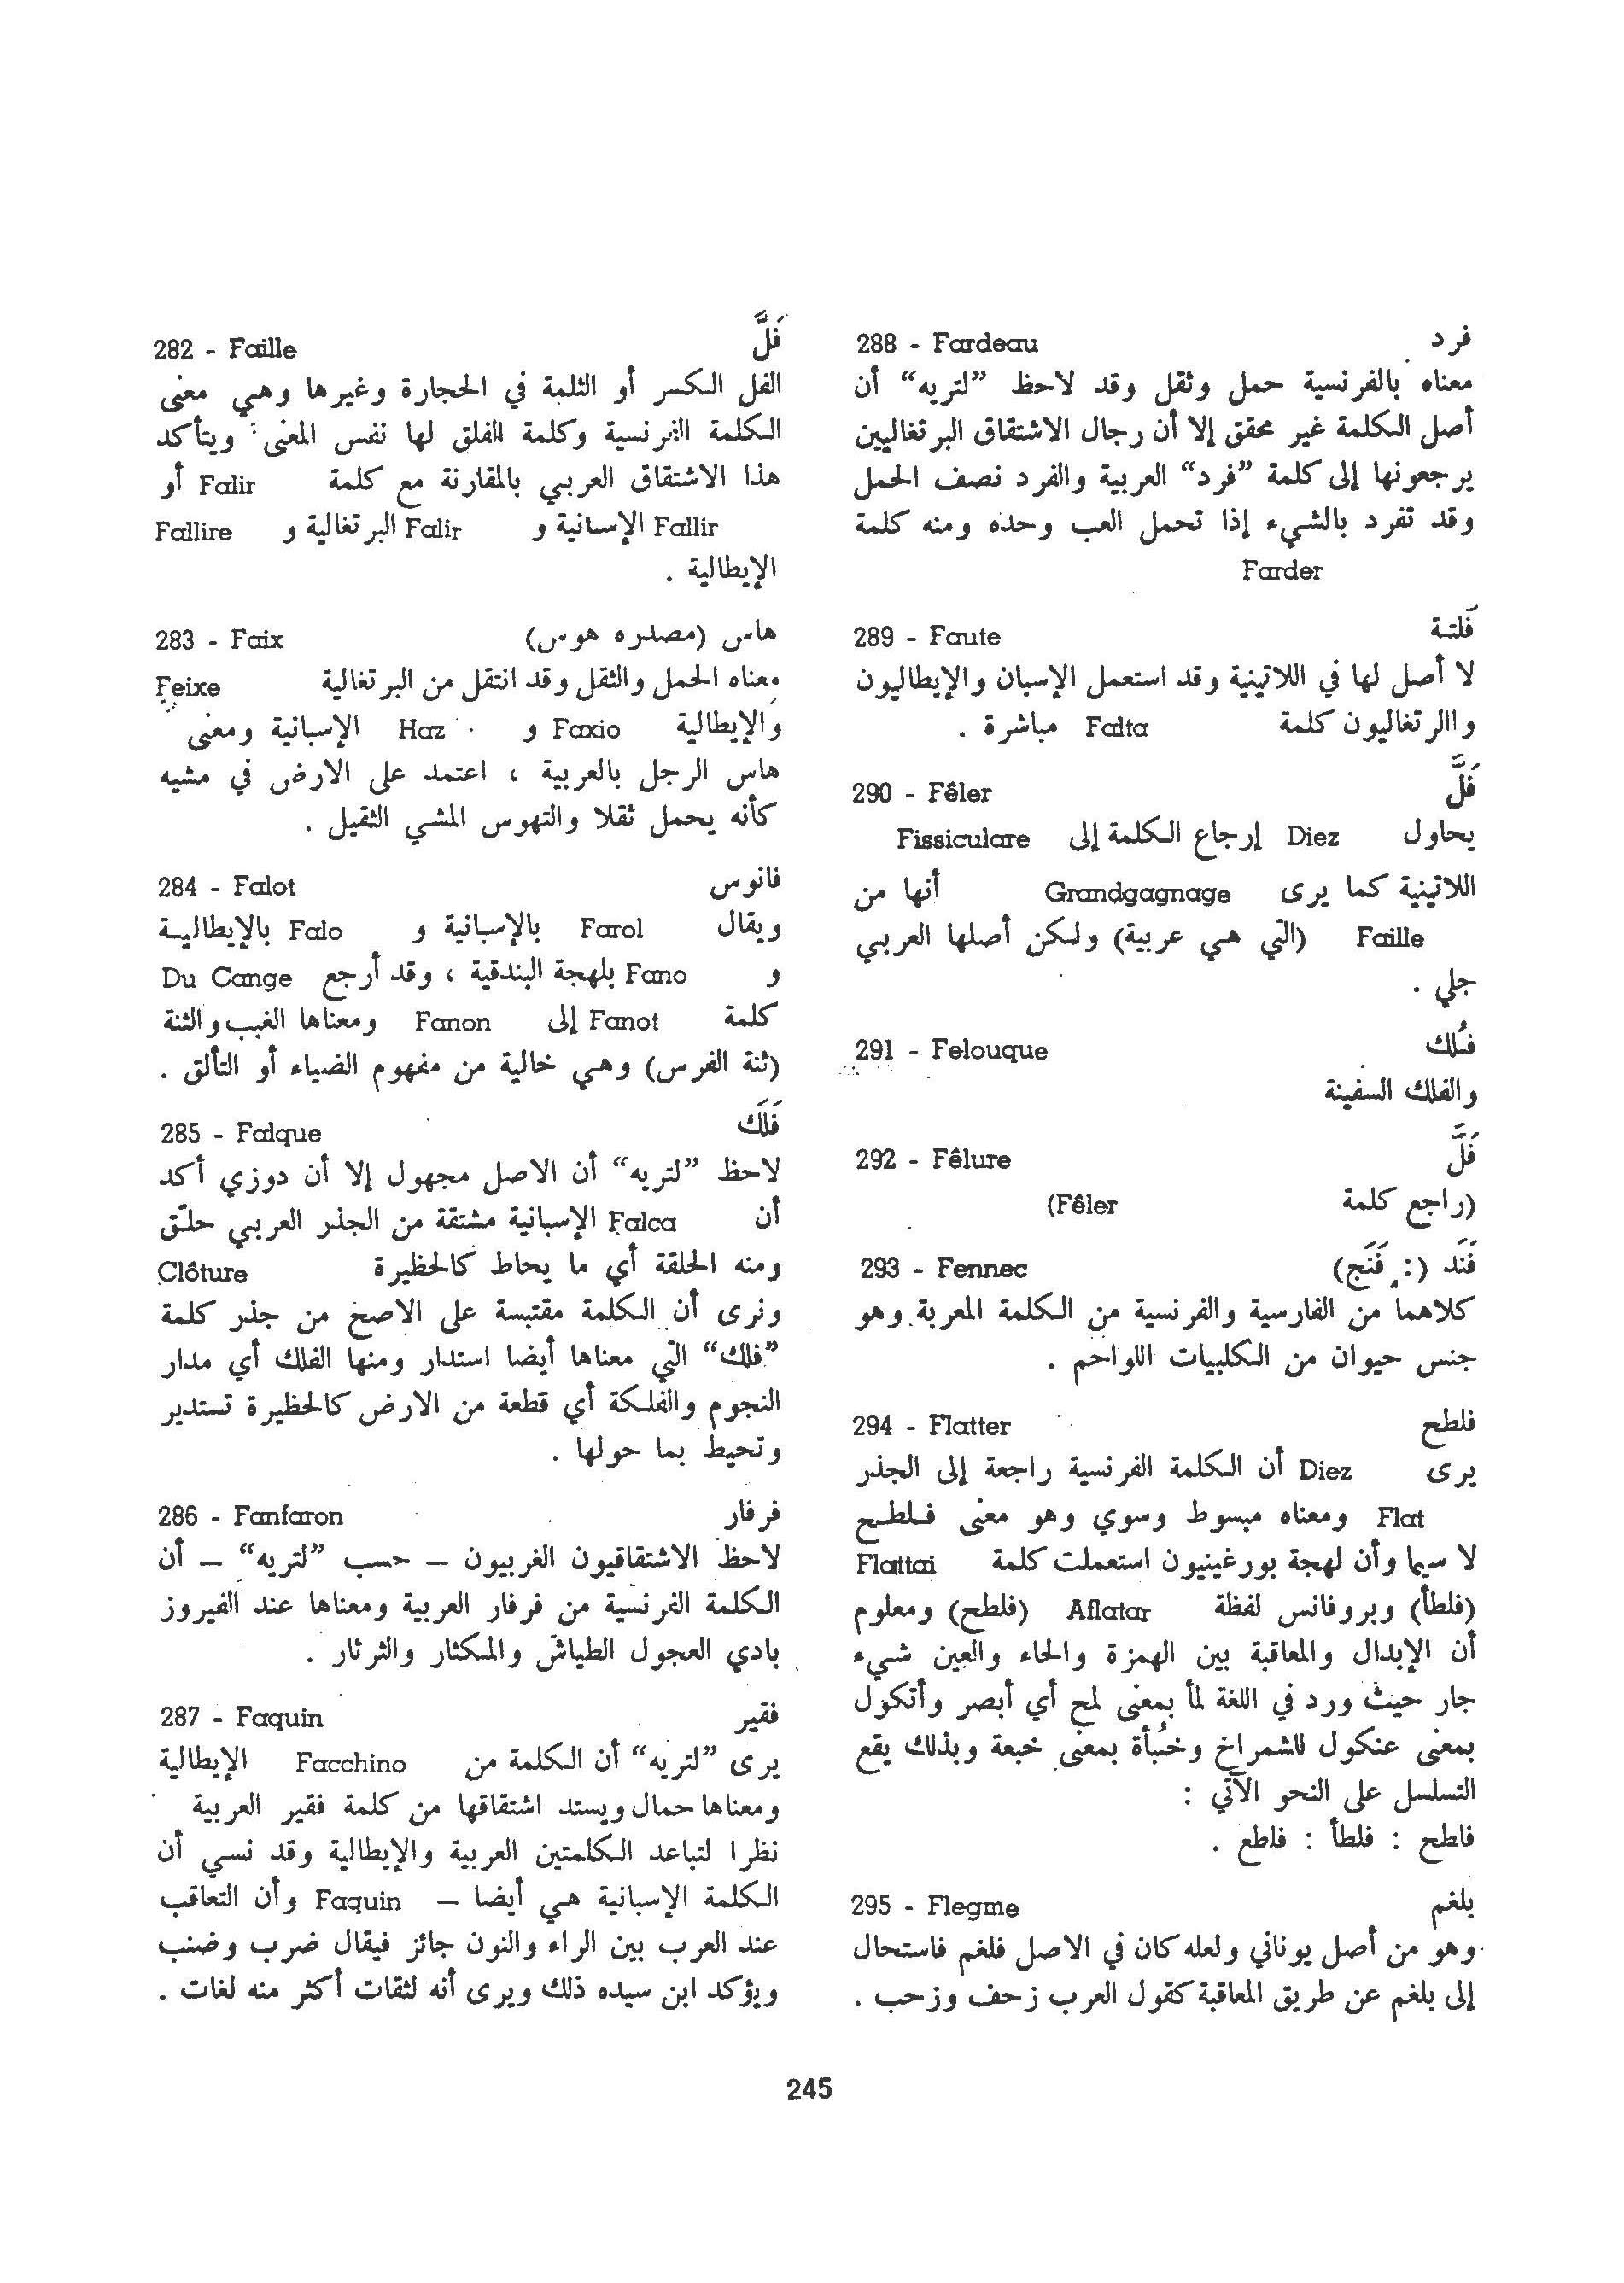 282 - Faille فَلَّ
الفل الكسر أو الثلمة في الحجارة وغيرها وهي معنى
الكلمة الفرنسية وكلمة الفلق لها نفس المعنى ويتأكد
هذا الاشتقاق العربي بالمقارنة مع كلمة Falir أو
Fallir الإسبانية و Falir البرتغالية و Fallire
الإيطالية .
283 - Faix هاس (مصدره هوس)
معناه الحمل والثقل وقد انتقل من البرتغالية Feixe
والإيطالية Faxio و Haz الإسبانية ومعنى
هاس الرجل بالعربية ، اعتمد على الارض في مشيه
كأنه يحمل ثقلا والتهوس المشي الثقيل .
284 - Falot فانوس
ويقال Farol بالإسبانية و Falo بالإيطالية
و Fano بلهجة البندقية ، وقد أرجع Du Cange
كلمة Fanot إلى Fanon ومعناها الغبب والثنة
(ثنة الفرس) وهي خالية من مفهوم الضياء أو التألق .
285 - Falque فَلَك
لاحظ ”لتريه“ أن الاصل مجهول إلا أن دوزي أكد
أن Falca الإسبانية مشتقة من الجذر العربي حلّق
ومنه الحلقة أي ما يحاط كالحظيرة Clôture
ونرى أن الكلمة مقتبسة على الاصح من جذر كلمة
”فلك“ التي معناها أيضا استدار ومنها الفلك أي مدار
النجوم والفلكة أي قطعة من الارض كالحظيرة تستدير
وتحيط بما حولها .
286 - Fanfaron فرفار
لاحظ الاشتقاقيون الغربيون – حسب ”لتريه“ – أن
الكلمة الفرنسية من فرفار العربية ومعناها عند الفيروز
بادي العجول الطياش والمكثار والثرثار .
287 - Faquin فقير
يرى ”لتريه“ أن الكلمة من Facchino الإيطالية
ومعناها حمال ويستد اشتقاقها من كلمة فقير العربية
نظرا لتباعد الكلمتين العربية والإيطالية وقد نسي أن
الكلمة الإسبانية هي أيضا – Faquin وأن التعاقب
عند العرب بين الراء والنون جائز فيقال ضرب وضنب
ويؤكد ابن سيده ذلك ويرى أنه لثقات أكثر منه لغات .
288 - Fardeau فرد
معناه بالفرنسية حمل وثقل وقد لاحظ ”لتريه“ أن
أصل الكلمة غير محقق إلا أن رجال الاشتقاق البرتغاليين
يرجعونها إلى كلمة ”فرد“ العربية والفرد نصف الحمل
وقد تفرد بالشيء إذا تحمل العب وحده ومنه كلمة
Farder
289 - Faute فَلتة
لا أصل لها في اللاتينية وقد استعمل الإسبان والإيطاليون
واالرتغاليون كلمة Falta مباشرة .
290 - Fêler فَلَّ
يحاول Diez إرجاع الكلمة إلى Fissiculare
اللاتينية كما يرى Grandgagnage أنها من
Faille (التي هي عربية) ولكن أصلها العربي
جلي .
291 - Felouque فُلك
والفلك السفينة
292 - Fêlure فَلَّ
(راجع كلمة Fêler)
293 - Fennec فَنَد (: فَنَج)
كلاهما من الفارسية والفرنسية من الكلمة المعربة وهو
جنس حيوان من الكلبيات اللواحم .
294 - Flatter فلطح
يرى Diez أن الكلمة الفرنسية راجعة إلى الجذر
Flat ومعناه مبسوط وسوي وهو معنى فلطح
لا سيما وأن لهجة بورغينيون استعملت كلمة Flattai
(فلطأ) وبروفانس لفظة Aflatar (فلطح) ومعلوم
أن الإبدال والمعاقبة بين الهمزة والحاء والعين شيء
جار حيث ورد في اللغة لمأ بمعنى لمح أي أبصر وأتكول
بمعنى عنكول للشمراخ وخُبأة بمعنى خبعة وبذلك يقع
التسلسل على النحو الآتي :
فلطح : فلطأ : فلطع .
295 - Flegme بلغم
وهو من أصل يوناني ولعله كان في الاصل فلغم فاستحال
إلى بلغم عن طريق المعاقبة كقول العرب زحف وزحب .
245